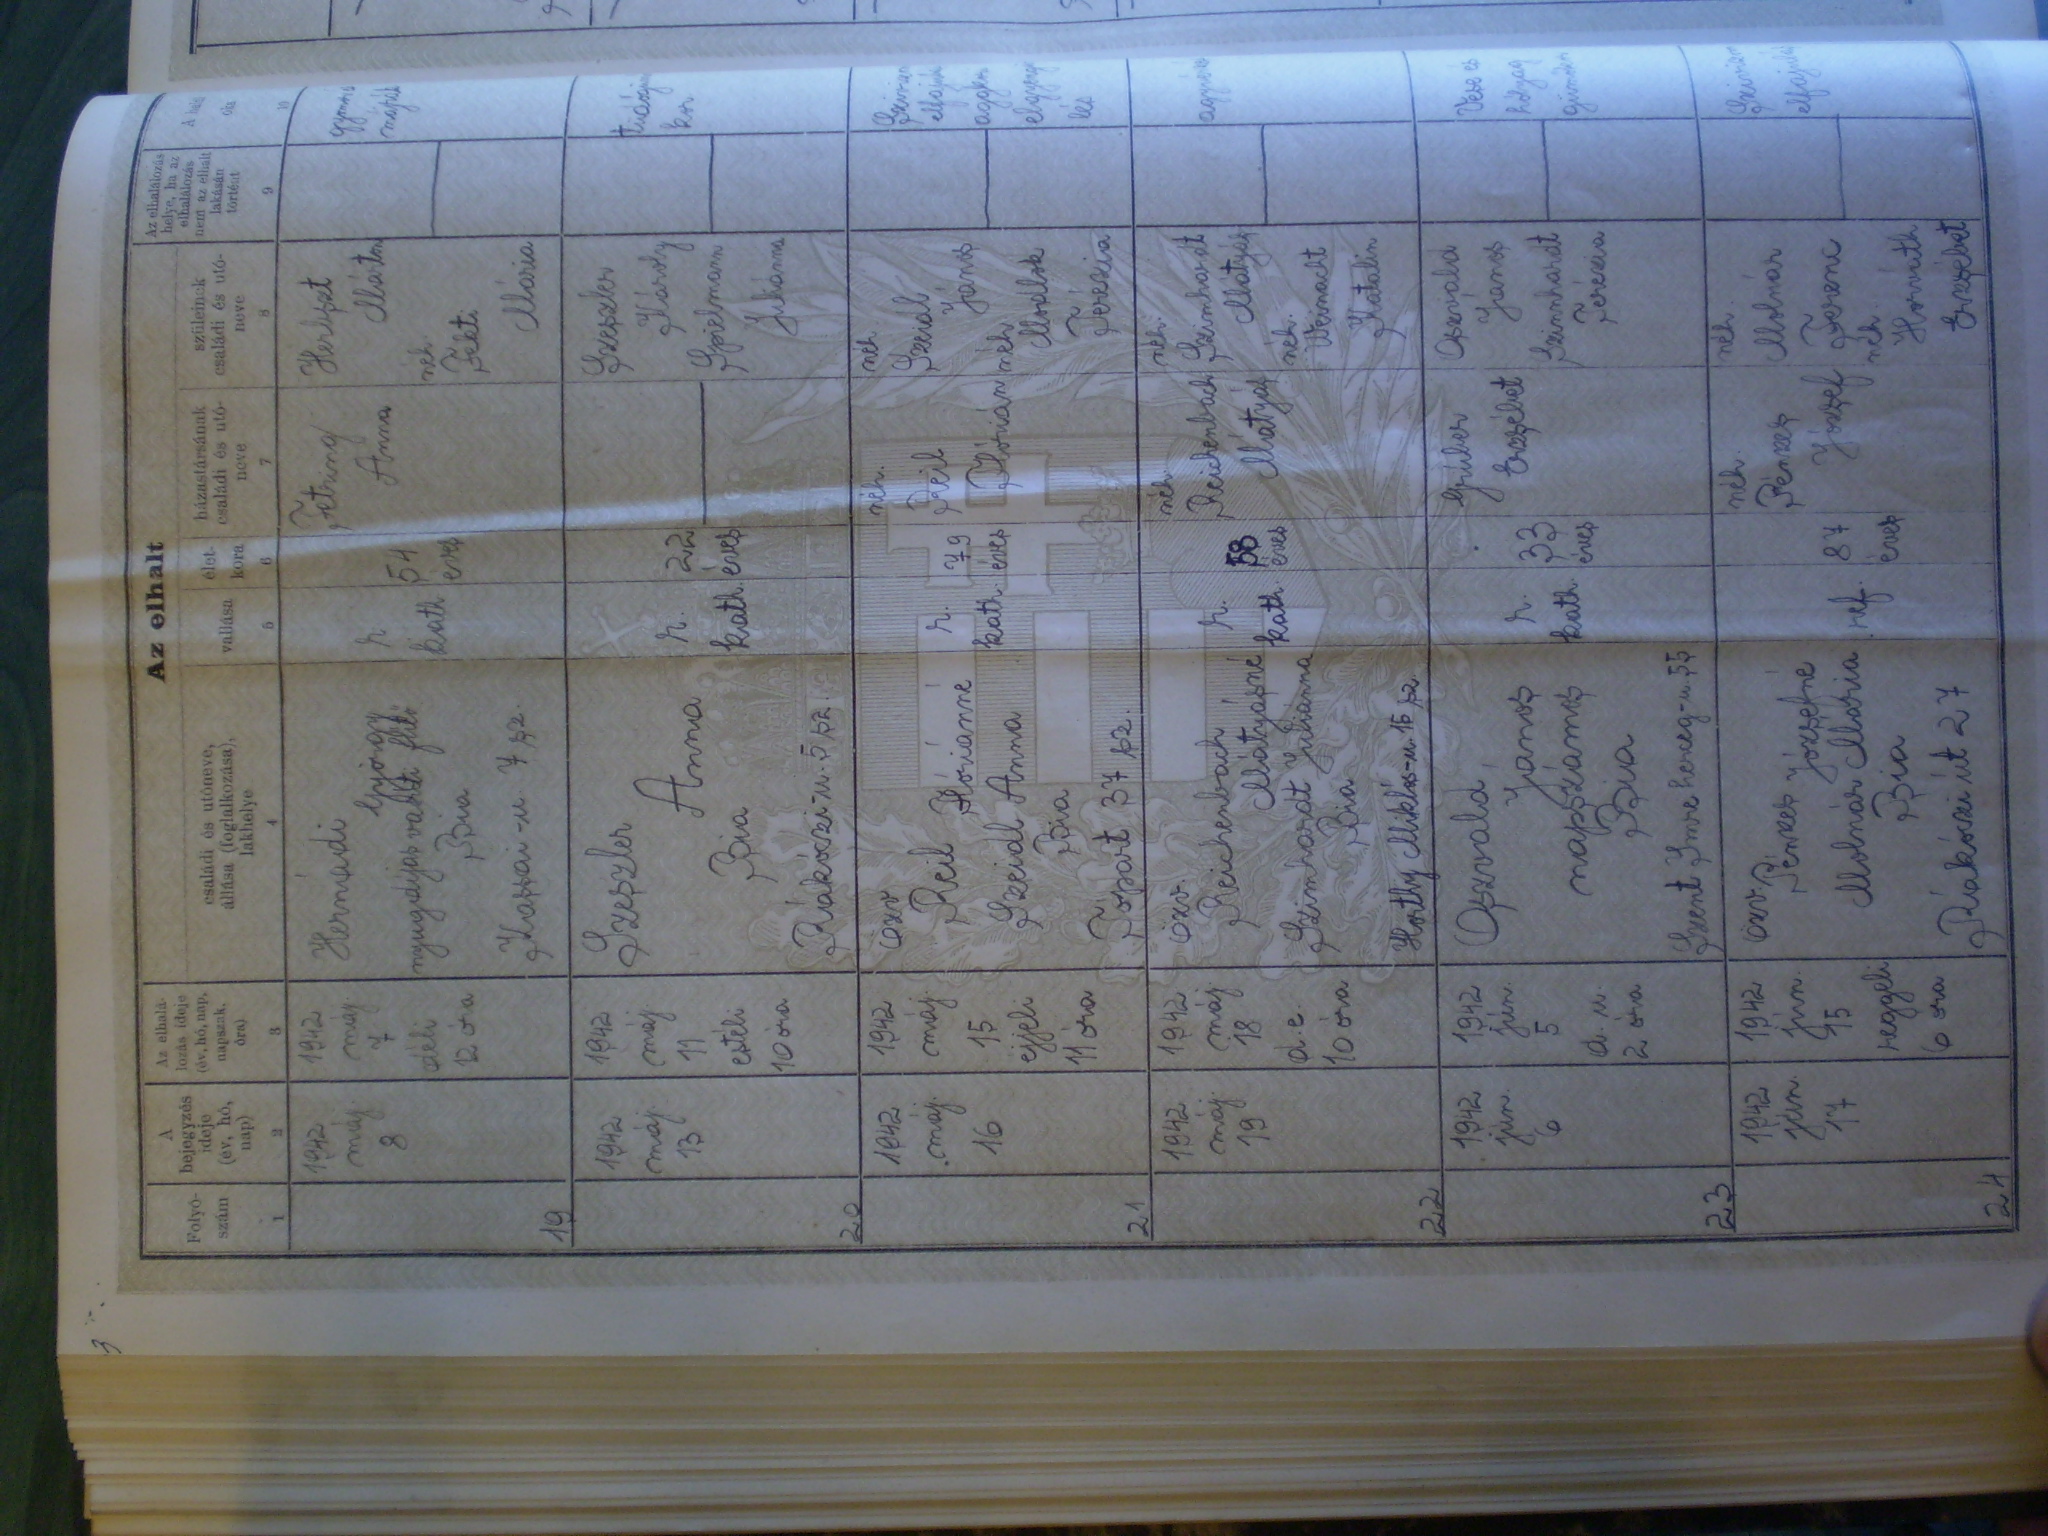 3
Az elhalt
Folyó-
szám
A
bejegyzés
ideje
(év, hó,
nap)
Az elhalá-
lozás ideje
(év, hó, nap,
napszak,
óra)
családi és utóneve,
állása (foglalkozása),
lakhelye
vallása
élet-
kora
házastársának
családi és utó-
neve
szüleinek
családi és utó-
neve
Az elhalálozás
helye, ha az
elhalálozás
nem az elhalt
lakásán
történt
A halál
oka
1
2
3
4
5
6
7
8
9
10
19
1942
máj.
8
1942
máj.
7
déli
12 óra
Hermándi
György
nyugdíjas
Bia
Kassai-u. 7 sz.
r.
kath.
54
éves
Anna
Márton
néh.
Mária
20
1942
máj.
13
1942
máj.
11
estéli
10 óra
Szeszler
Anna
Bia
Rákóczi-u. 5 sz.
r.
kath.
22
éves
Szeszler
Károly
Spielmann
Julianna
21
1942
máj.
16
1942
máj.
15
éjjeli
11 óra
özv.
Reil Flóriánné
Szeidl Anna
Bia
Tópart 37 sz.
r.
kath.
79
éves
néh.
Reil
Flórián
néh.
Szeidl
János
néh.
Terézia
22
1942
máj.
19
1942
máj.
18
d. e.
10 óra
özv.
Reichenbach
Mátyásné
Szimhardt Julianna
Bia
Horthy Miklós-u. 16 sz.
r.
kath.
58
éves
néh.
Reichenbach
Mátyás
néh.
Szimhardt
Mátyás
néh.
Weinacht
Katalin
23
1942
jún.
6
1942
jún.
5
d. u.
2 óra
Oszvald
János
napszámos
Bia
Szent Imre herceg-u. 55
r.
kath.
33
éves
Grúber
Erzsébet
Oszvald
János
Szimhardt
Terézia
24
1942
jún.
17
1942
jún.
15
reggeli
6 óra
özv.
Pénzes Józsefné
Molnár Mária
Bia
Rákóczi út 27
ref.
87
éves
néh.
Pénzes
József
néh.
Molnár
Ferenc
néh.
Horváth
Erzsébet